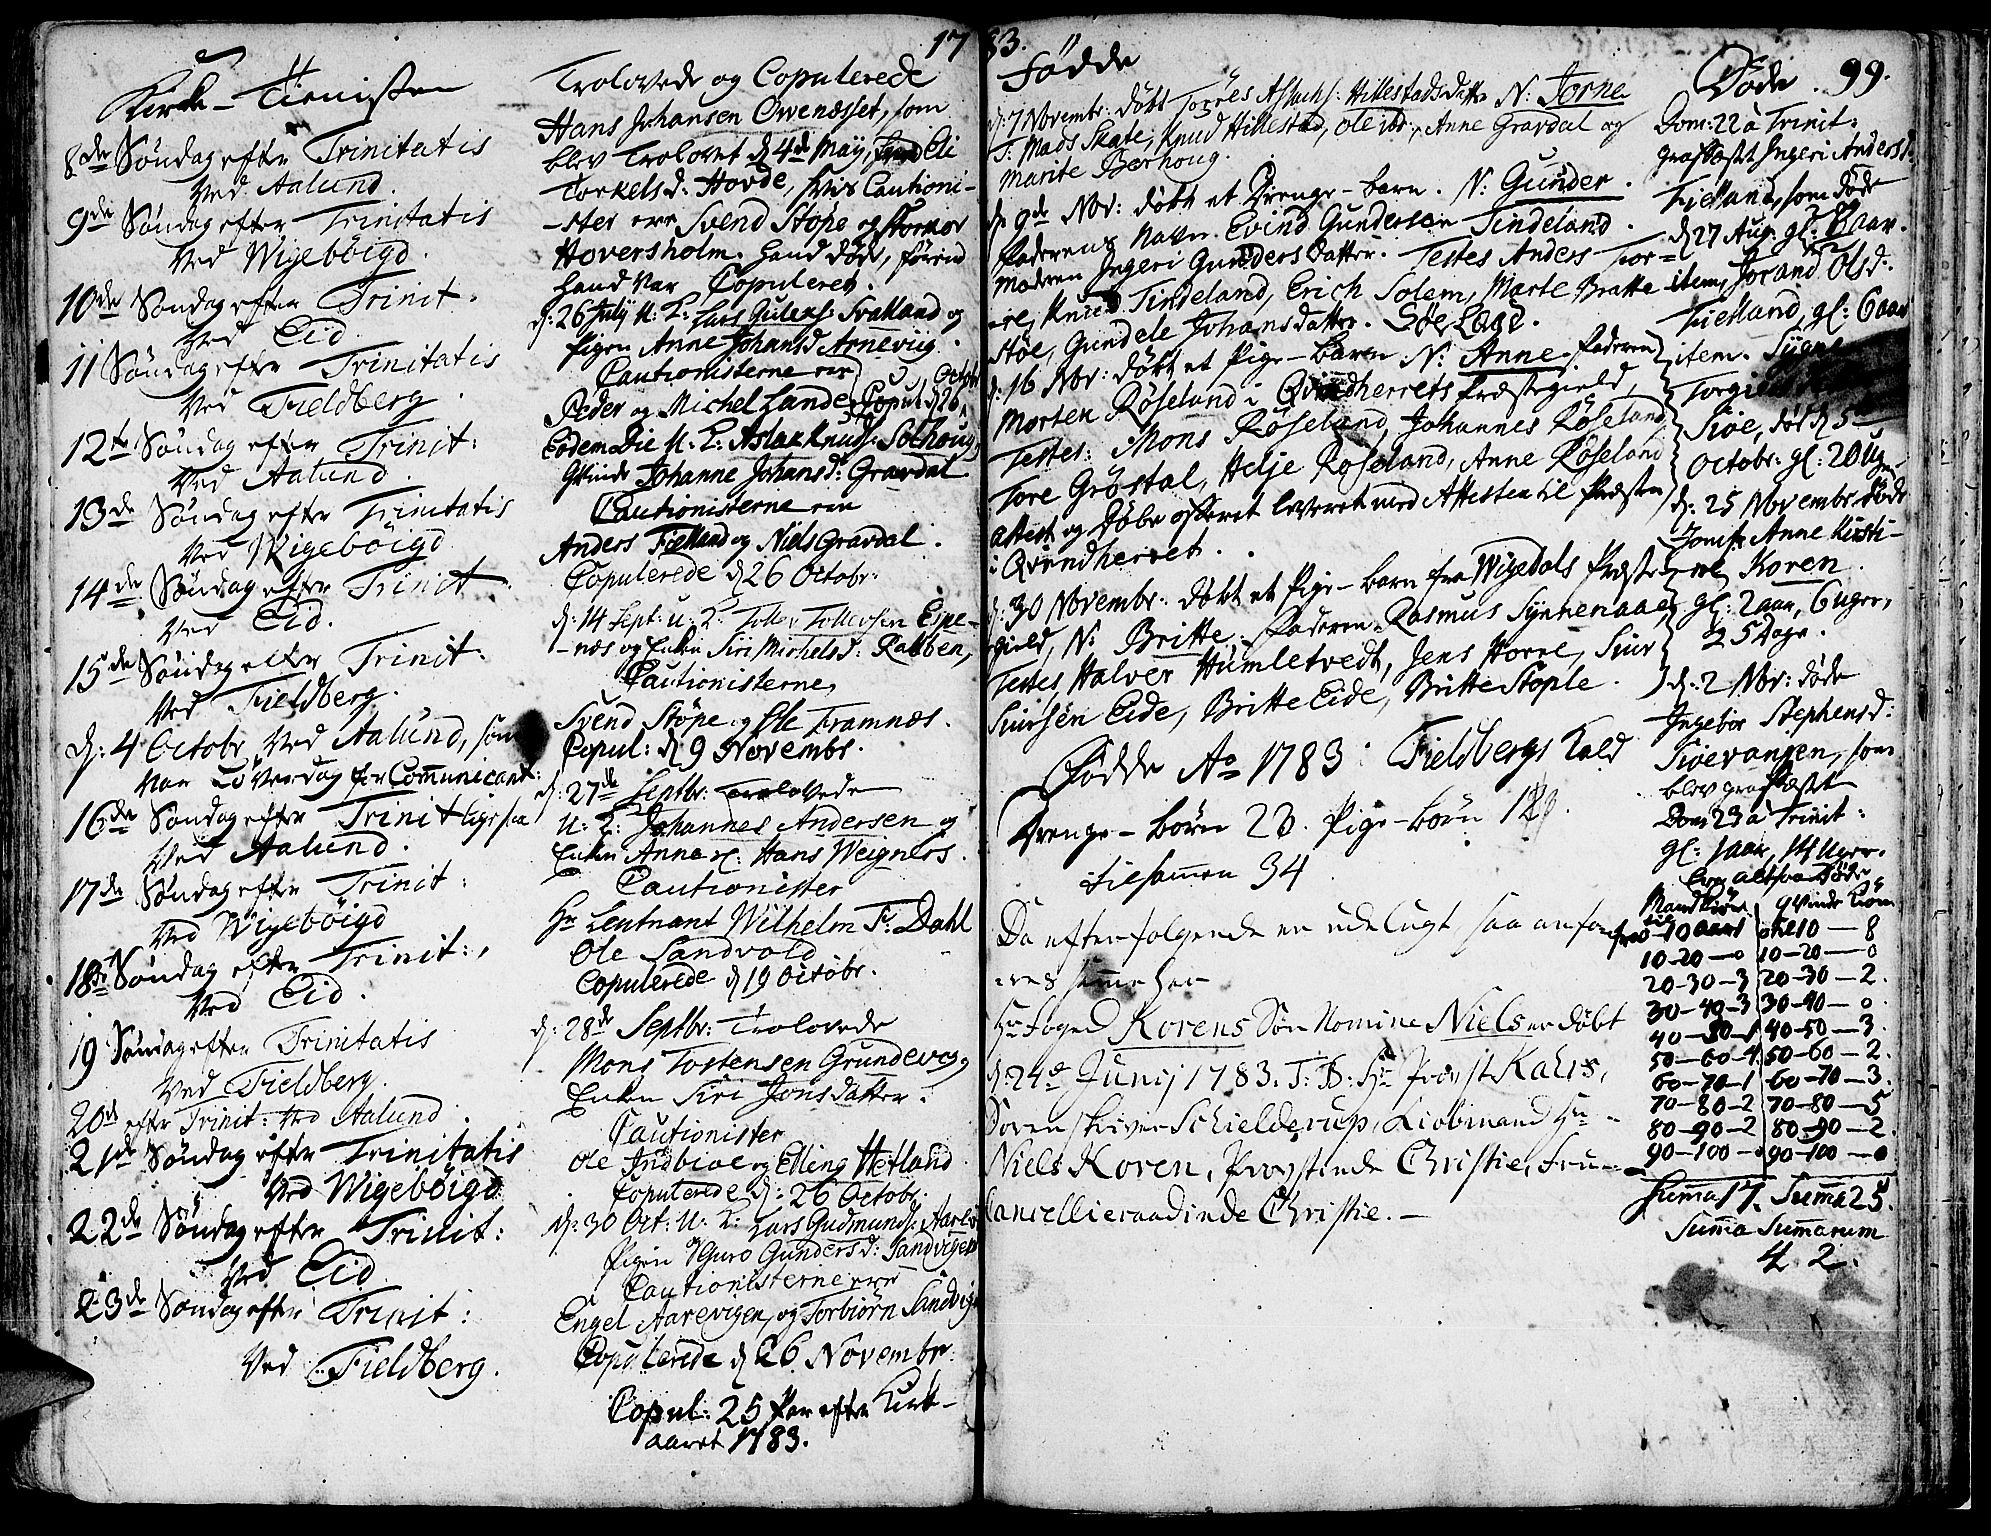 1783.
99.
Kirke-Tienisten
8de Søndag efter Trinitatis
Ved Aalund.
9de Søndag efter Trinitatis
Ved Wigebøigd.
10de Søndag efter Trinit:
Ved Eid
11 Søndag efter Trinitatis
Ved Fieldberg.
12te Søndag efter Trinit:
Ved Aalund.
13de Søndag efter Trinitatis
Ved Wigebøigd
14de Søndag efter Trinit.
Ved Eid.
15de Søndag efter Trinit:
Ved Fieldberg.
d: 4 Octobr. Ved Aalund, som
var Løverdag for Communicant:
16de Søndag efter Trinit ligesaa
Ved Aalund.
17de Søndag efter Trinit:
Ved Wigebøigd
18de Søndag efter Trinit:
Ved Eid.
19 Søndag efter Trinitatis
Ved Fieldberg.
20de efter Trinit: Ved Aalund.
21de Søndag efter Trinitatis
Ved Wigebøigd
22de Søndag efter Trinit:
Ved Eid
23de Søndag efter Trinit:
Ved Fieldberg.
Trolovede og Copulerede
Hans Johansen Owenæsset, som
blev Trolovet d 4de Maij, Eli
Torkelsd. Hovde, hvis Cautioni-
-ster ere Svend Støpe og
Hoversholm. hand døde, førend
hand var Copuleret.
d: 26 Julij U: K: Lars Julens: Svatland og
Pigen Anne Johansd Arnevug.
Cautionisterne ere
Peder og Michel Lande Copul. d 26 Octobr
Eodem Die U: K: Aslak Knuds: Solhoug,
Qvinde Johanne Johansd: Gravdal
Cautionisterne ere
Anders Fielland og Niels Gravdal.
Copulerede d 26 Octobr:
d: 14 Sept: U: K: Tollev Tollevsen Espe-
-næs og Enken Siri Michelsd: Rabben,
Cautionisterne,
Svend Støpe og Ole Framnæs.
Copul: d 9 Novembr.
d: 27de Septbr: Trolovede
U: K: Johannes Andersen og
Enken Anna sl: Hans Weigners.
Cautionister
Hr Leutnant Wilhelm F: Dahl
Ole Sandvold
Copulerede d 19 Octobr.
d: 28de Septbr: Trolovede
Mons Tostensen Grundevog,
Enken Siri Jonsdatter.
Cautionister
Ole Indbioe og Elling Hetland
Copulerede d: 26 Octobr.
d: 30 Oct: U: K: Lars Gudmunds: Aarev
Pigen Guro Gundersd: Sandvigen
Cautionisterne ere
Engel Aarevigen, og Torbiørn Sandvig
Copulerede d 26 Novembr.
Copul: 25 Par efter Kirk-
aaret 1783.
Fødde
d: 7 Novembr: døbt Torres Aslachs: Hillestads datter N: Torne
T: Mads Skate, Knud Hillestad, Ole ibd:, Anne Gravdal og
Marite Berhoug.
d. 9de Nov: døbt et Drenge-barn. N: Gunder.
Faderens Navn Evind Gundersen Tindeland.
Moderen Ingeri Gunders datter. Testes Anders Tor-
-re, Knud Tindeland, Erich Solem, Marte Bratte
støe, Gundele Johansdatter.
d: 16 Nov: døbt et Pige-barn N: Anne. Faderen
Morten Røseland i Qvindherrets Præstegield,
Testes: Mons Røseland, Johannes Røseland
Tore Grøstøl, Helje Røseland, Anne Røseland
attest og Døbe offeret leveret med Attesten til Præsten
i Qvindherret.
d: 30 Novembr: døbt et Pige-barn fra Wigedals Præste-
gield, N: Britte. Faderen Rasmus Synnenaae,
Testes Halver Humletvedt, Jens Horre, Siur
Siursen Eide, Britte Eide, Britte Stople.
Fødde Ao 1783: Fieldbergs Kald
Drenge-børn 23. Pige-børn
tilsammen 34
Da efterfølgende er udelugt, saa anføres
samme her
Hr Foged Korens Søn Nomine Niels er døbt
d: 24de Junij 1783. T: B: Hr Provst Kahrs,
Sorenskriver Schielderup, Kiøbmand Hr
Niels Koren, Provstinde Christie, Fru
Cancellieraadinde Christie.
Døde
Dom: 22 à Trinit:
grafæstet Ingeri Andersd.
Fielland, som døde
d 27 Aug: gl: 8 aar.
item, Jorand Olsd:
Fielland, gl: 6 aar
item.
Torgi
Tioe, død d 5te
Octobr: gl: 20 Uger
d: 25 Novembr døde
Jomfr Anne Kirsti-
ne Koren.
gl: 2 aar, 6 uger,
5 Dage.
d: 2 Nov: døde
Ingebor Stephensd:
Tioevangen, som
blev grafæstet
Dom 23 à Trinit:
gl: 1 aar, 14 Uger.
Ere altsaa døde
Mandkiøn Qvindekiøn
10-20—0 10-20—0
20-30-3 20-30—2.
30-40-3 30-40—0
40-50-1 40-50—3.
50-60-4 50-60—2.
60-70-1 60-70—3.
70-80-2 70-80—5
80-90-2 80-90—2.
90-100—0 90-100—0
Summa 17. Summa 25.
Summa Summarum
42.